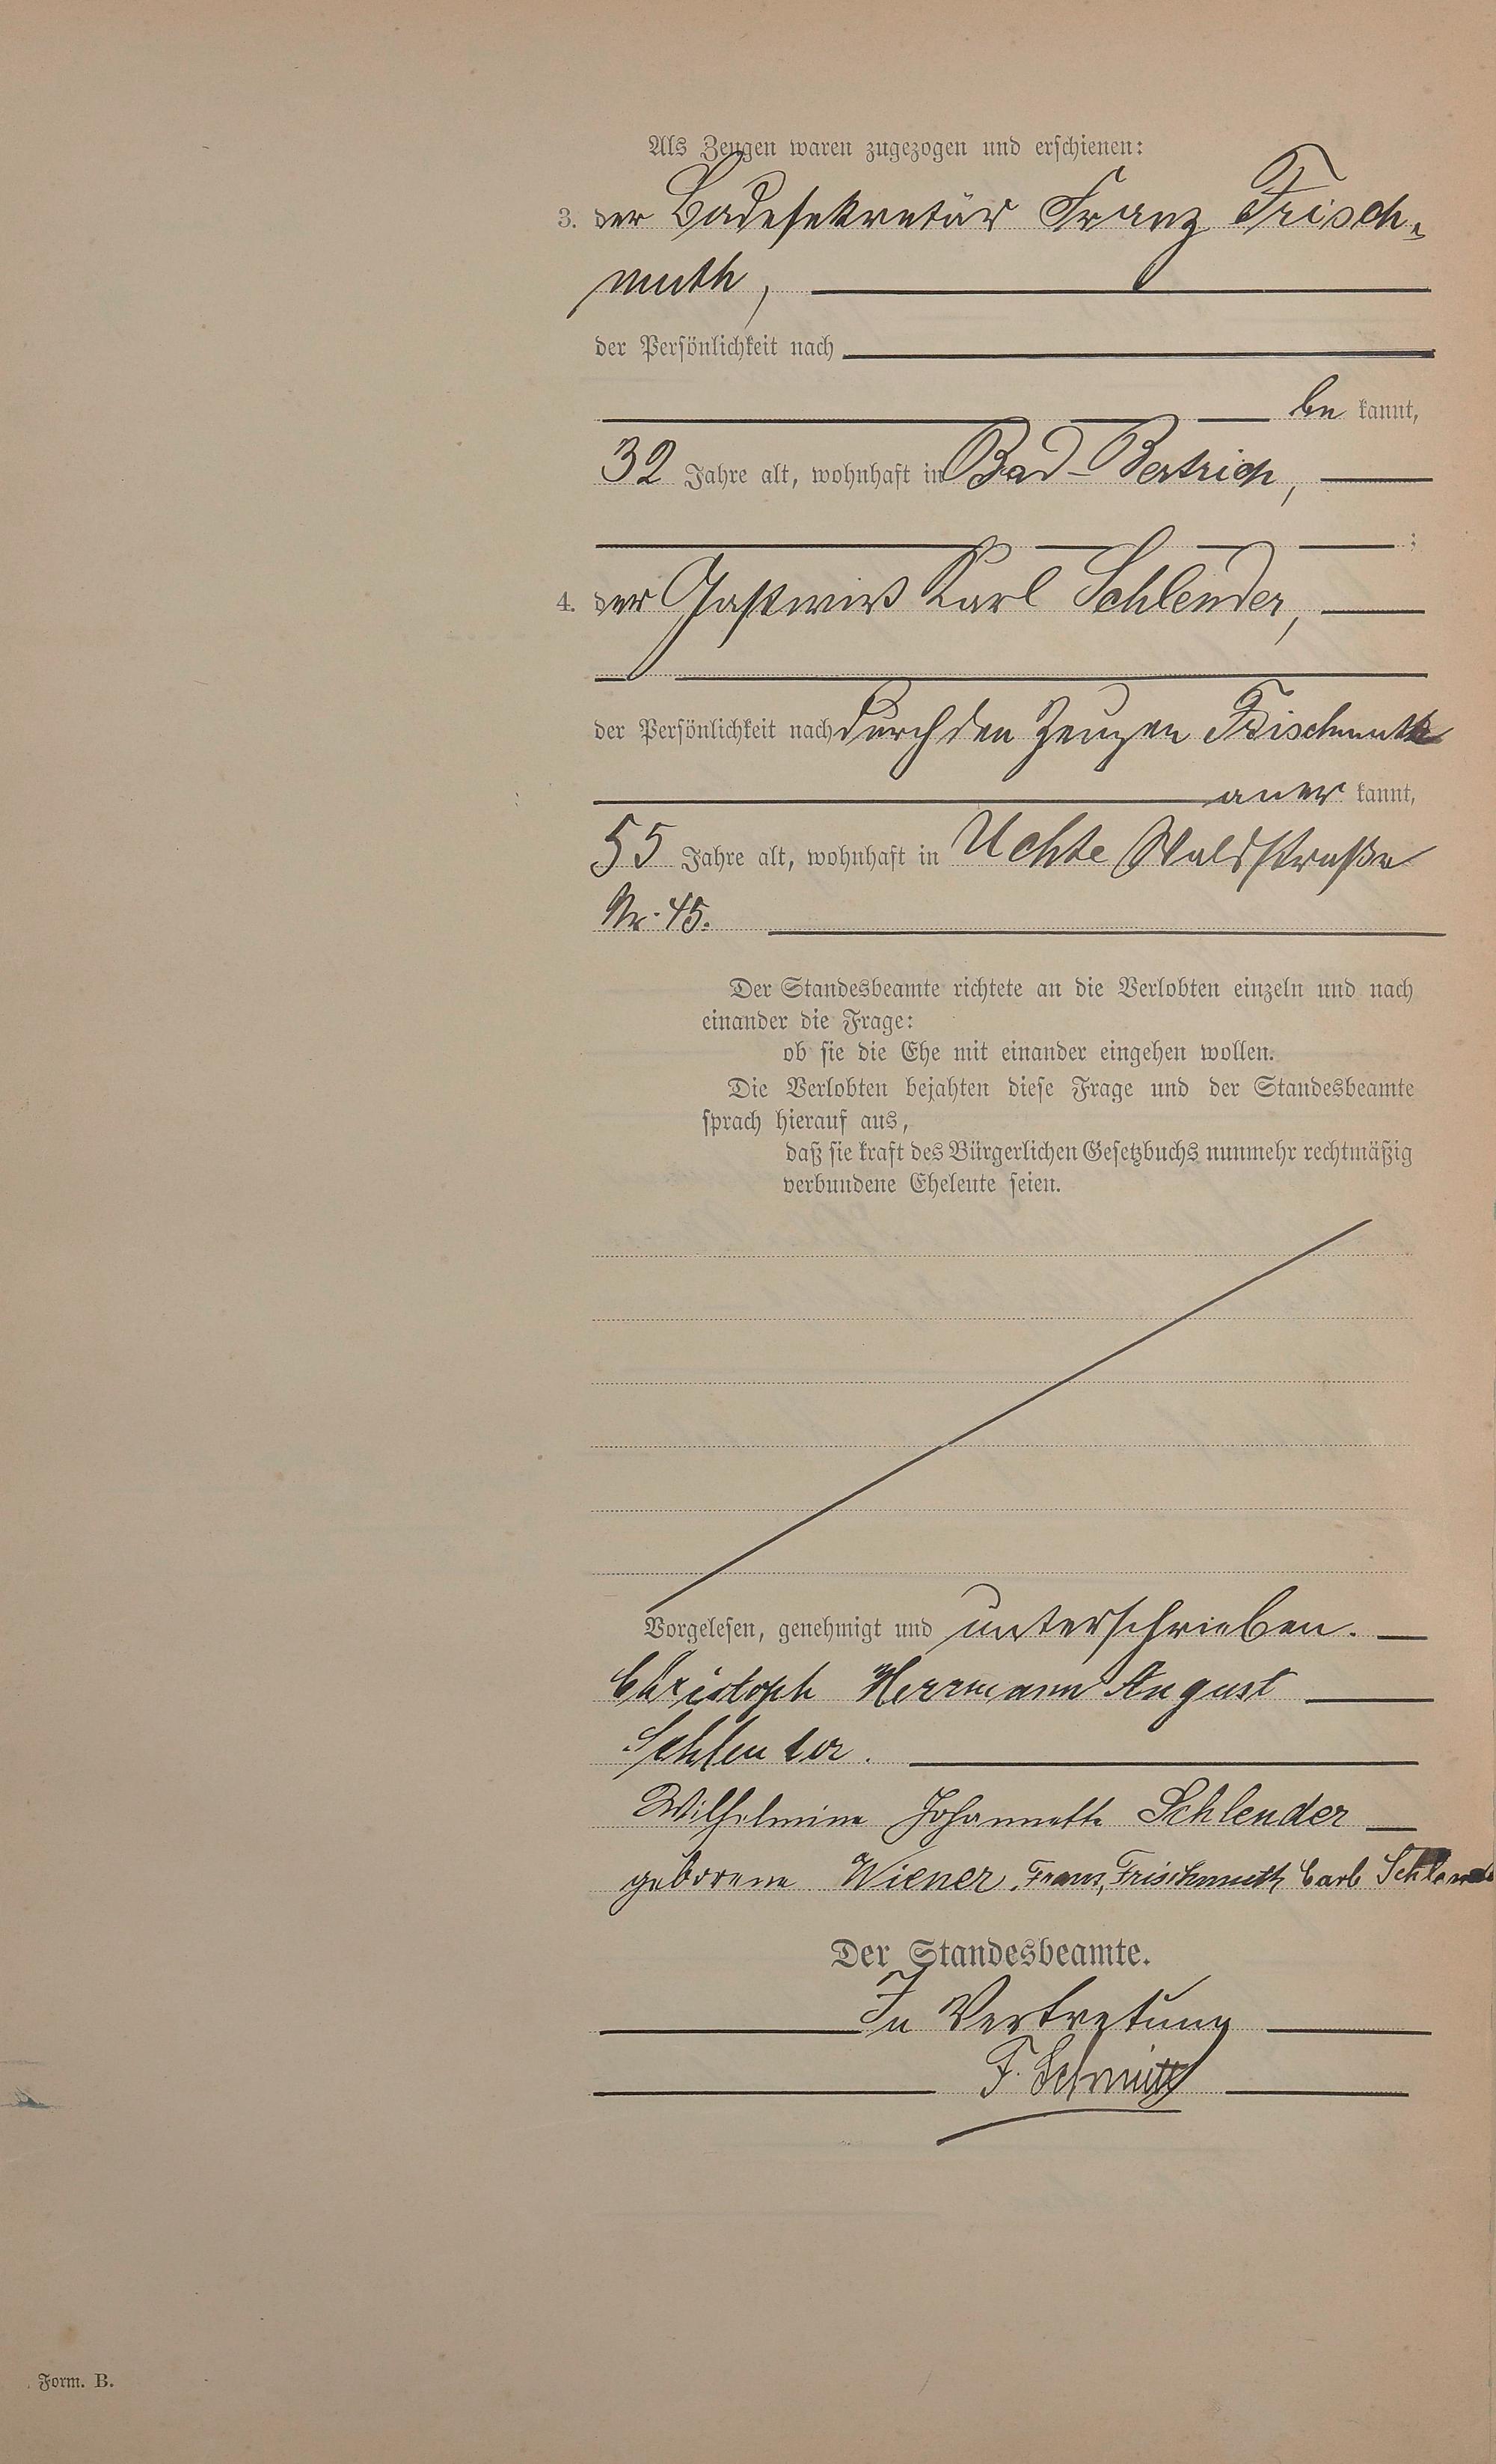 Als Zeugen waren zugezogen und erschienen:
3. der Badesekretär Franz Frisch-
muth,
der Persönlichkeit nach
be kannt,
32 Jahre alt, wohnhaft in Bad-Bertrich,
;
4. der Gastwirt Karl Schlender,
der Persönlichkeit nach durch den Zeugen Frischmuth
aner kannt,
55 Jahre alt, wohnhaft in Uchte Waldstraße
Nr. 45.
Der Standesbeamte richtete an die Verlobten einzeln und nach
einander die Frage:
ob sie die Ehe mit einander eingehen wollen.
Die Verlobten bejahten diese Frage und der Standesbeamte
sprach hierauf aus,
daß sie kraft des Bürgerlichen Gesetzbuchs nunmehr rechtmäßig
verbundene Eheleute seien.
Vorgelesen, genehmigt und unterschrieben.
Christoph Herrmann August
Schlender.
Wilhelmine Johannette Schlender
geborene Wiener, Franz Frischmuth Carl Schlender
Der Standesbeamte.
In Vertretung
F. Schmitt
Form. B.